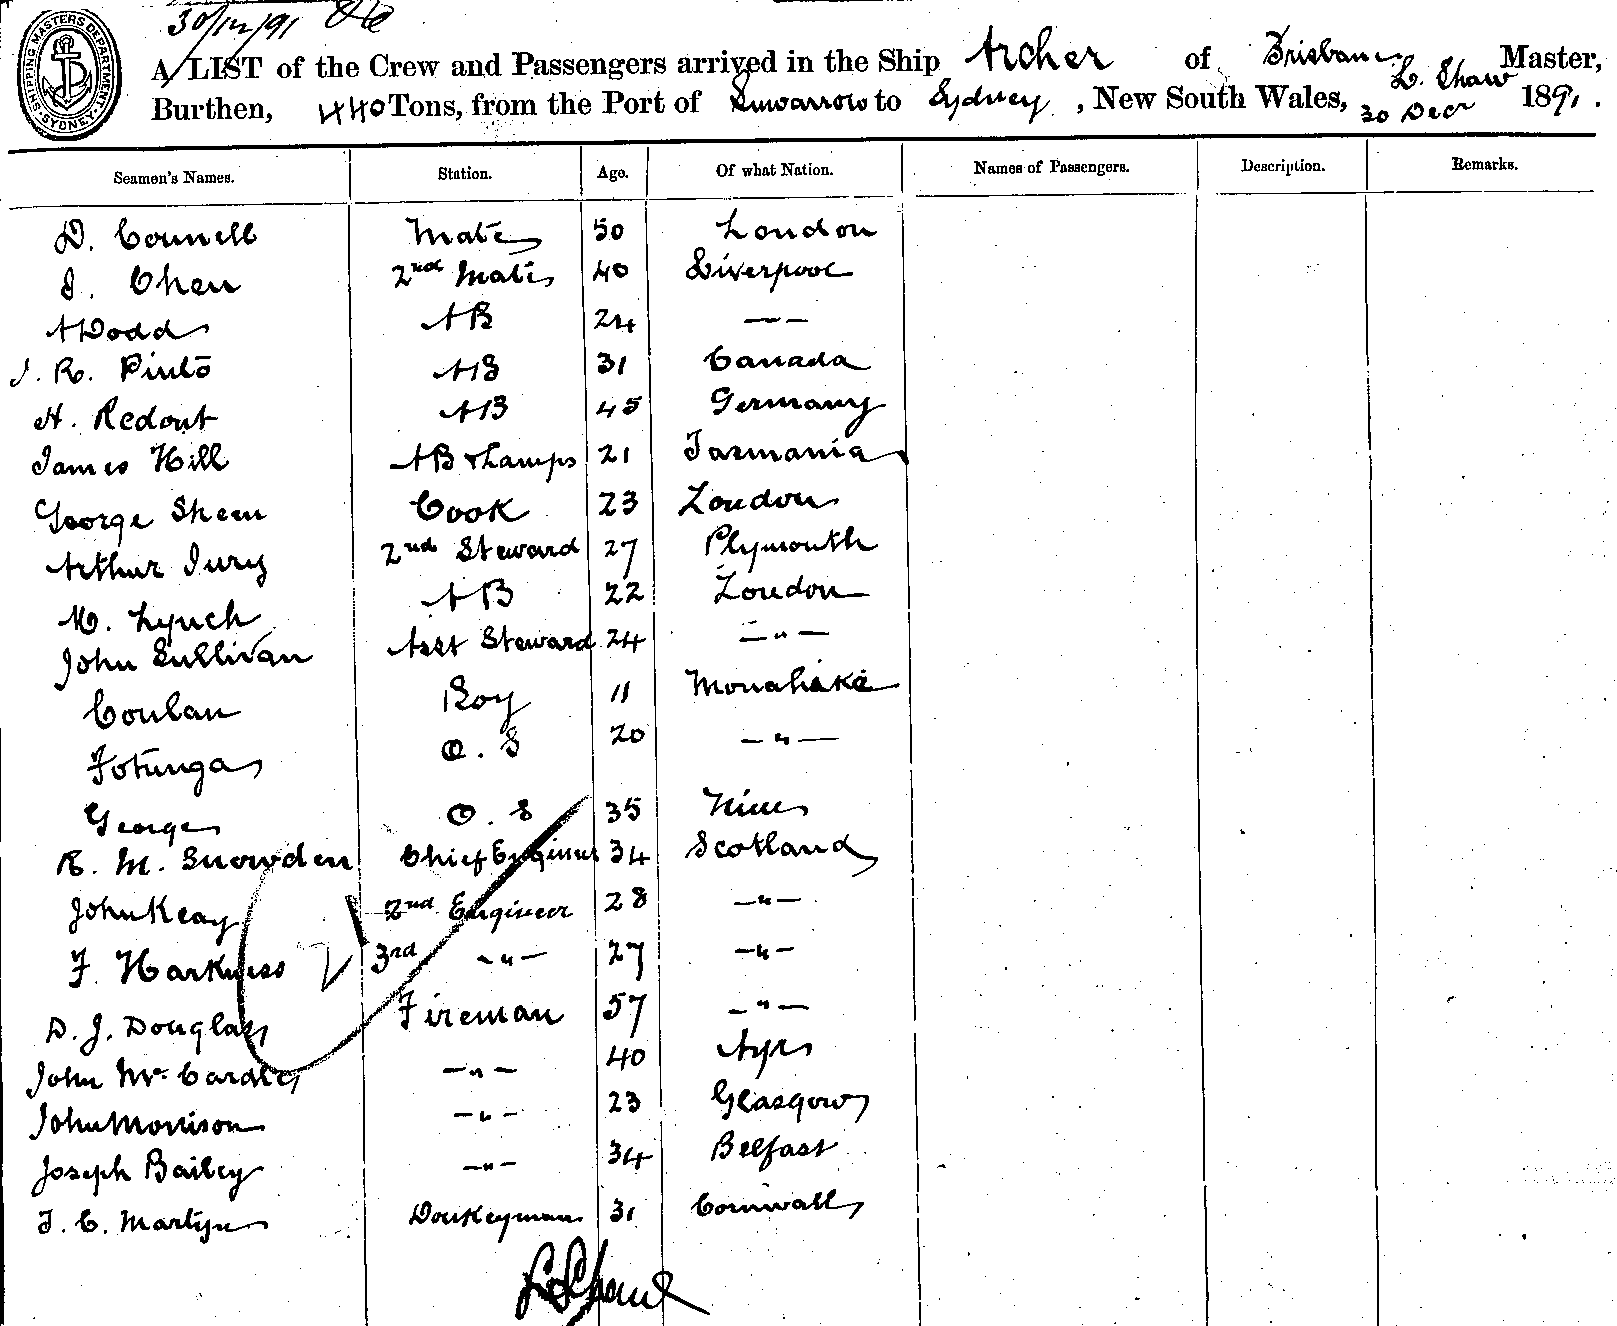 30/12/91
SHIPPING MASTERS DEPARTMENT SYDNEY
A LIST of the Crew and Passengers arrived in the Ship Archer of Brisbane L. Shaw Master,
Burthen, 440 Tons, from the Port of Suwarrow to Sydney, New South Wales, 30 Decr 1891.
Seamen's Names. Station. Age. Of what Nation. Names of Passengers. Description. Remarks.
D. Connell Mate 50 London
J. Chen 2nd Mate 40 Liverpool
A Dodd AB 24 — —
J. R. Pinto AB 31 Canada
H. Redout AB 45 Germany
James Hill AB & Lamps 21 Tasmania
George Sheen Cook 23 London
Arthur Jury 2nd Steward 27 Plymouth
M. Lynch AB 22 London
John Sullivan Asst Steward 24 — " —
Coulan Boy 11 Monahiki
Fotunga O. S 20 — " —
George O. S 35 Niue
R. M. Snowden Chief Engineer 34 Scotland
John Keay 2nd Engineer 28 — " —
F. Harkness 3rd — " — 27 — " —
D. J. Douglas Fireman 57 — " —
John McCardle — " — 40 Ayr
John Morrison — " — 23 Glasgow
Joseph Bailey — " — 34 Belfast
J. C. Martyn Donkeyman 31 Cornwall
L Shaw